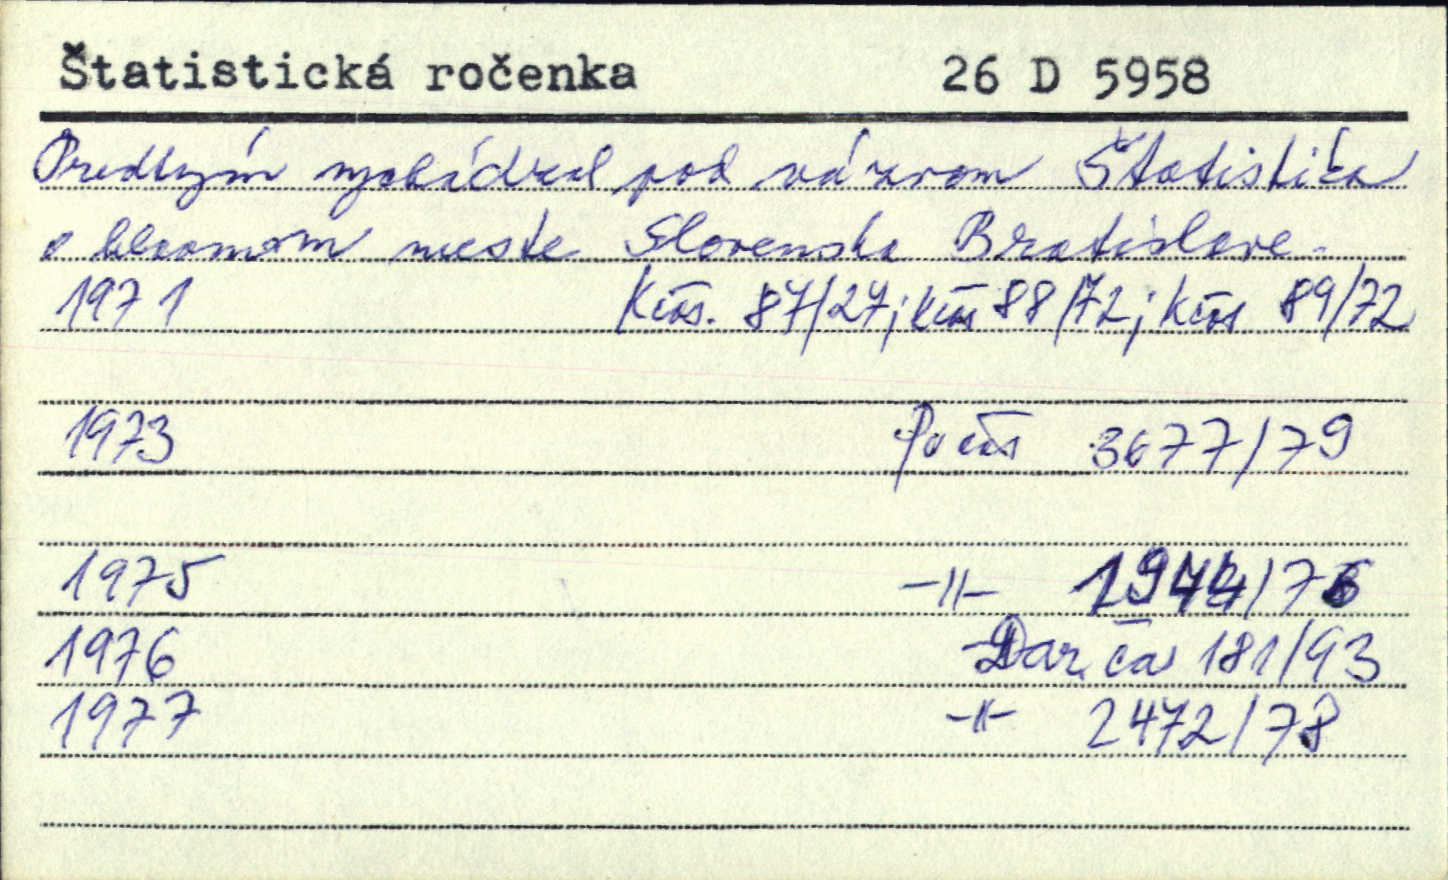 Štatistická ročenka 26 D 5958
Predtým vychádzal pod názvom Štatistika
o hlavnom meste Slovenska Bratislave.
1971 Kčas. 87/27; Kčas 88/72; Kčas 89/72
1973 Počas 3677/79
1975 -"- 1944/76
1976 Dar. ča 181/93
1977 -"- 2472/78